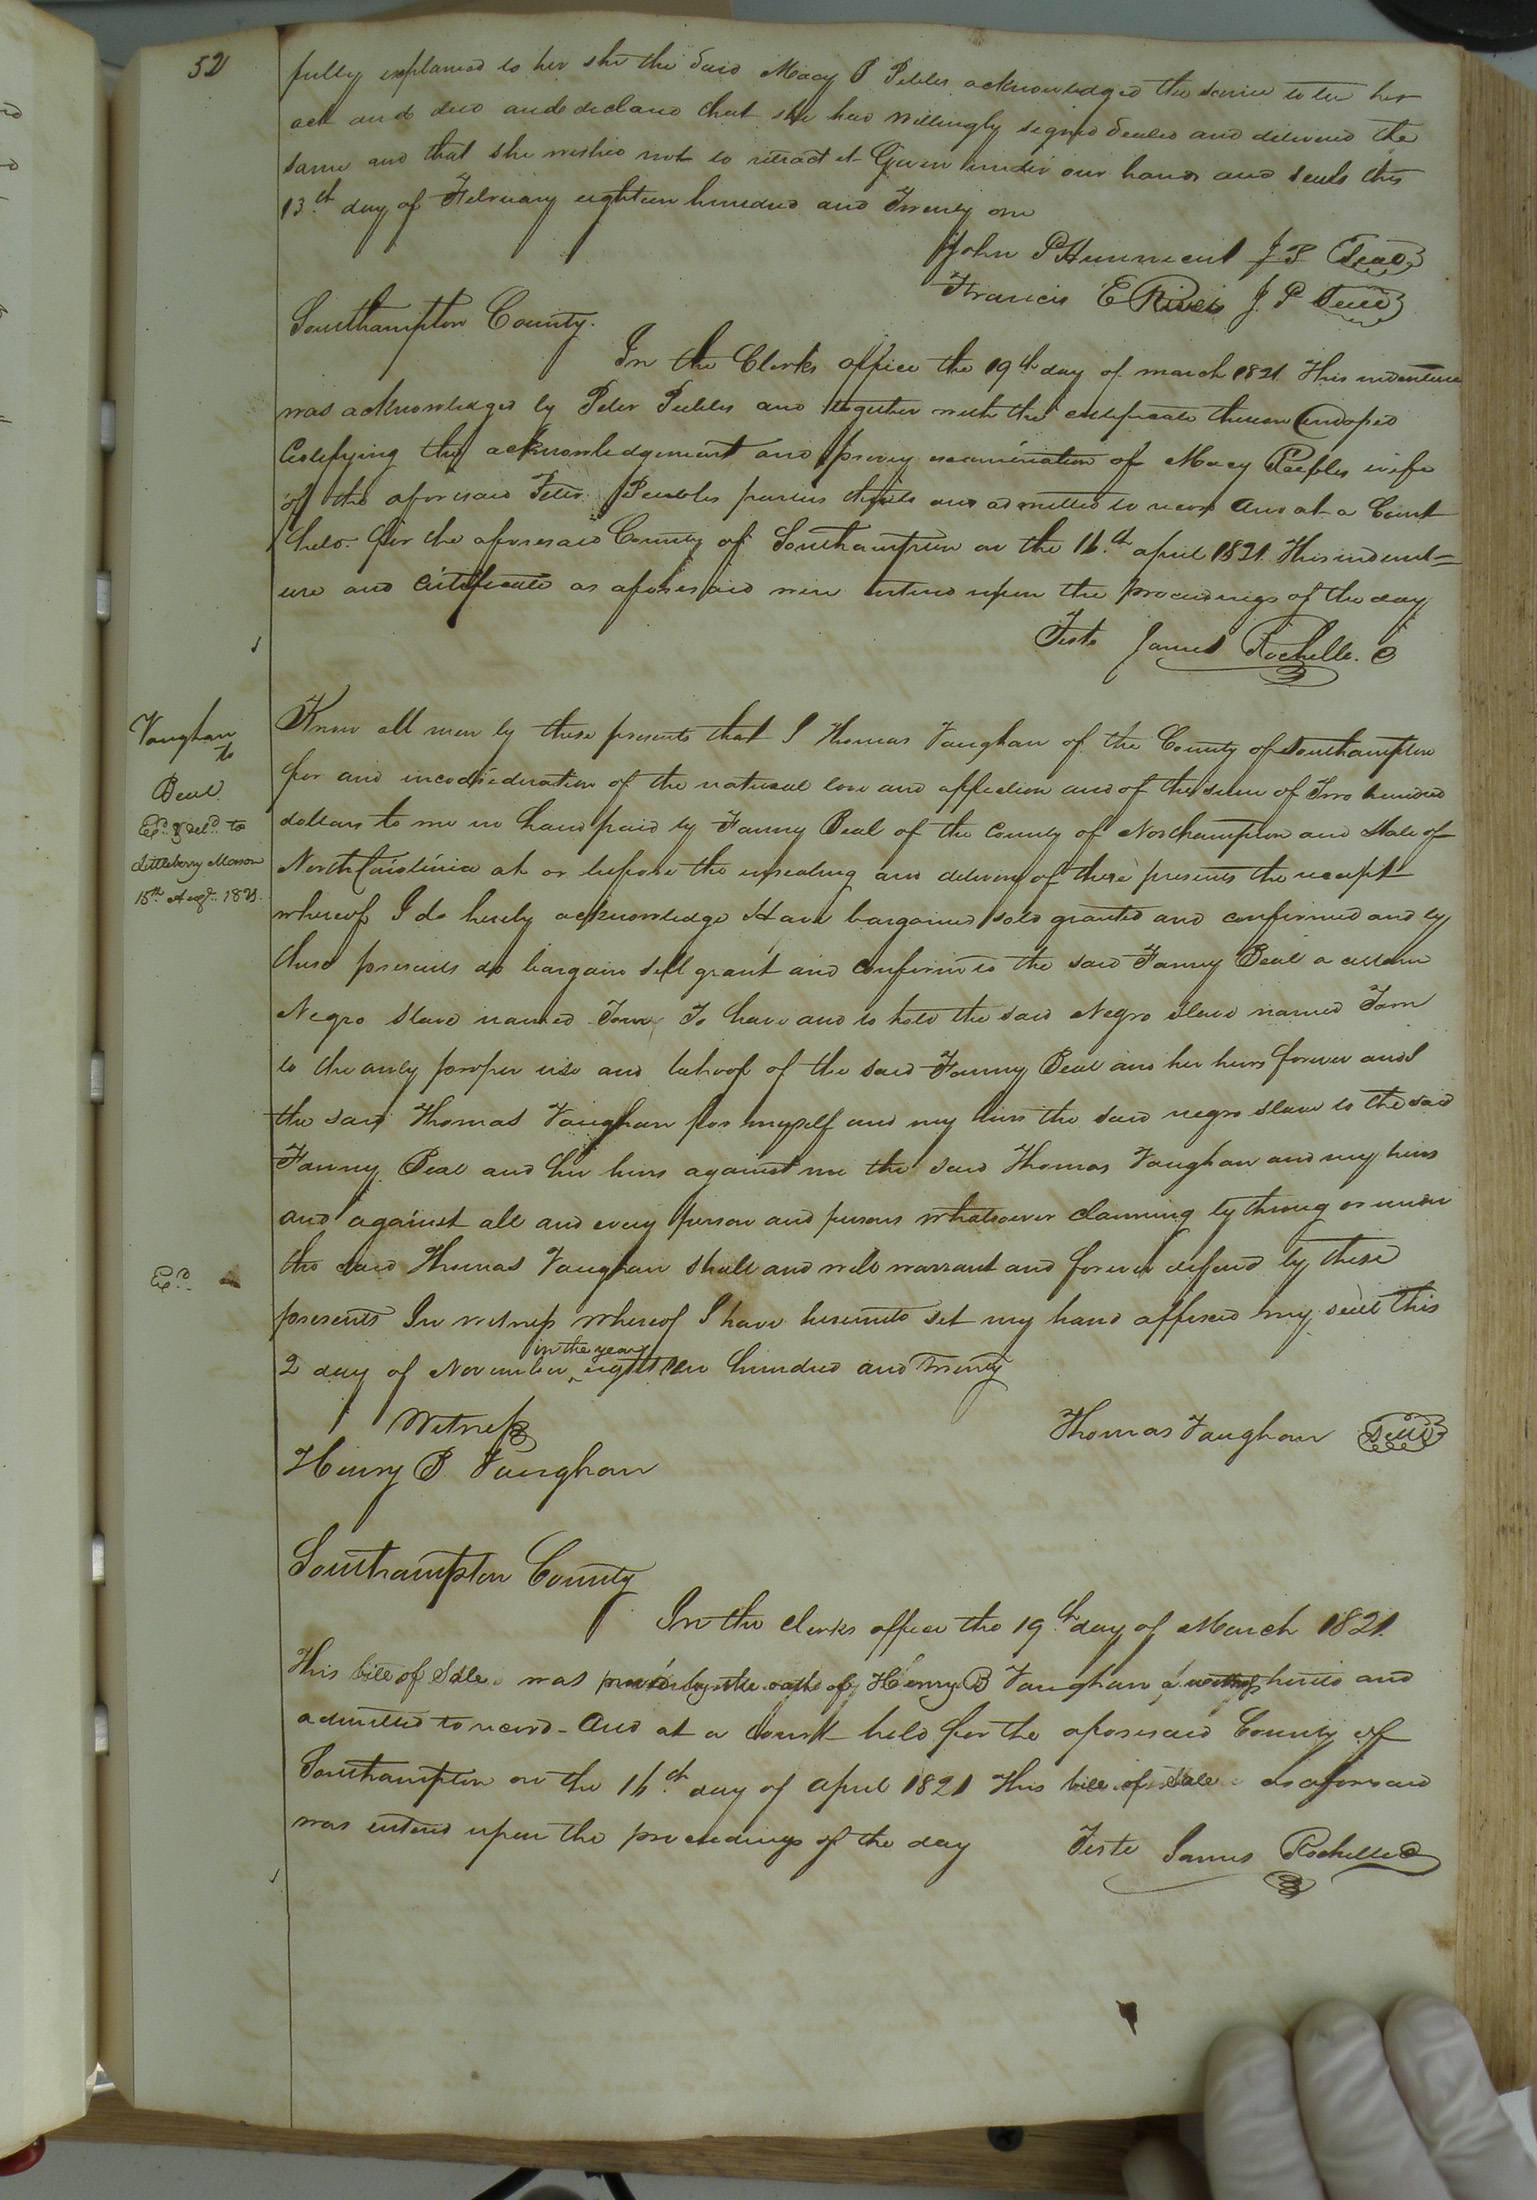 52
fully explained to her she the said Macy P Peebles acknowledged the same to be her
act and deed and declared that she had willingly signed sealed and delivered the
same and that she wished not to retract it Given under our hands and seals this
13th day of February eighteen hundred and Twenty one
John P Hunnicut J P Seal
Francis E Rives J. P Seal
Southampton County.
In the Clerks office the 19th day of march 1821 This indenture
was acknowledged by Peter Peebles and together with the certificate thereon Endorsed
Certifying the acknowledgement and privy examination of Macy Peebles wife
of the aforesaid Peter Peebles parties thereto and admitted to record And at a Court
held for the aforesaid County of Southampton on the 16th april 1821. This indent=
ure and certificate as aforesaid were entered upon the proceedings of the day
Teste James Rochelle. C
Vaughan
to
Beal
Ex.d & del.d to
Littleberry Mason
15th Aug.t 1821.
Know all men by these presents that I Thomas Vaughan of the County of Southampton
for and inconsideration of the natural love and affection and of the sum of Two hundred
dollars to me in hand paid by Fanny Beal of the County of Northampton and State of
North Carolinia at or before the ensealing and delivery of these presents the receipt
whereof I do hereby acknowledge Have bargained sold granted and confirmed and by
these presents do bargain sell grant and confirm to the said Fanny Beal a certain
Negro slave named Tom To have and to hold the said Negro slave named Tom
to the only proper use and behoof of the said Fanny Beal and her heirs forever and I
the said Thomas Vaughan for myself and my heirs the said negro slave to the said
Fanny Beal and her heirs against me the said Thomas Vaughan and my heirs
and against all and every person and persons whatsoever claiming by throug or under
the said Thomas Vaughan shall and will warrant and forever defend by these
Ex.d
presents In witness whereof I have hereunto set my hand affixed my seal this
2 day of November in the year eighteen hundred and Twenty
Witness
Thomas Vaughan Seal
Henry B Vaughan
Southampton County
In the clerks office the 19th day of March 1821.
This bill of Sale was proved by the oath of Henry B Vaughan a witness hereto and
admitted to record - And at a Court held for the aforesaid County of
Southampton on the 16th day of april 1821 This bill of Sale as aforesaid
was entered upon the proceedings of the day Teste James Rochelle C